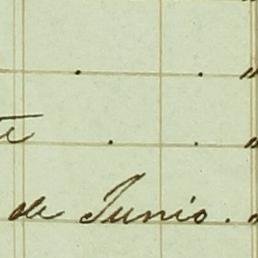 . . "
te . . "
de Junio. "